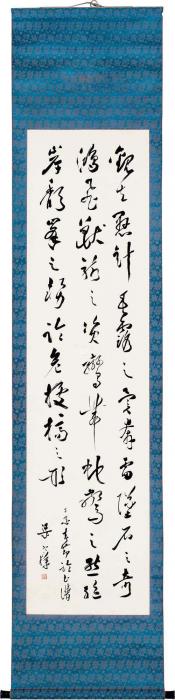 觀夫懸針垂露之異奔雷墜石之奇
鴻飛獸駭之資鸞舞蛇驚之態絕
岸頹峯之勢臨危據槁之形